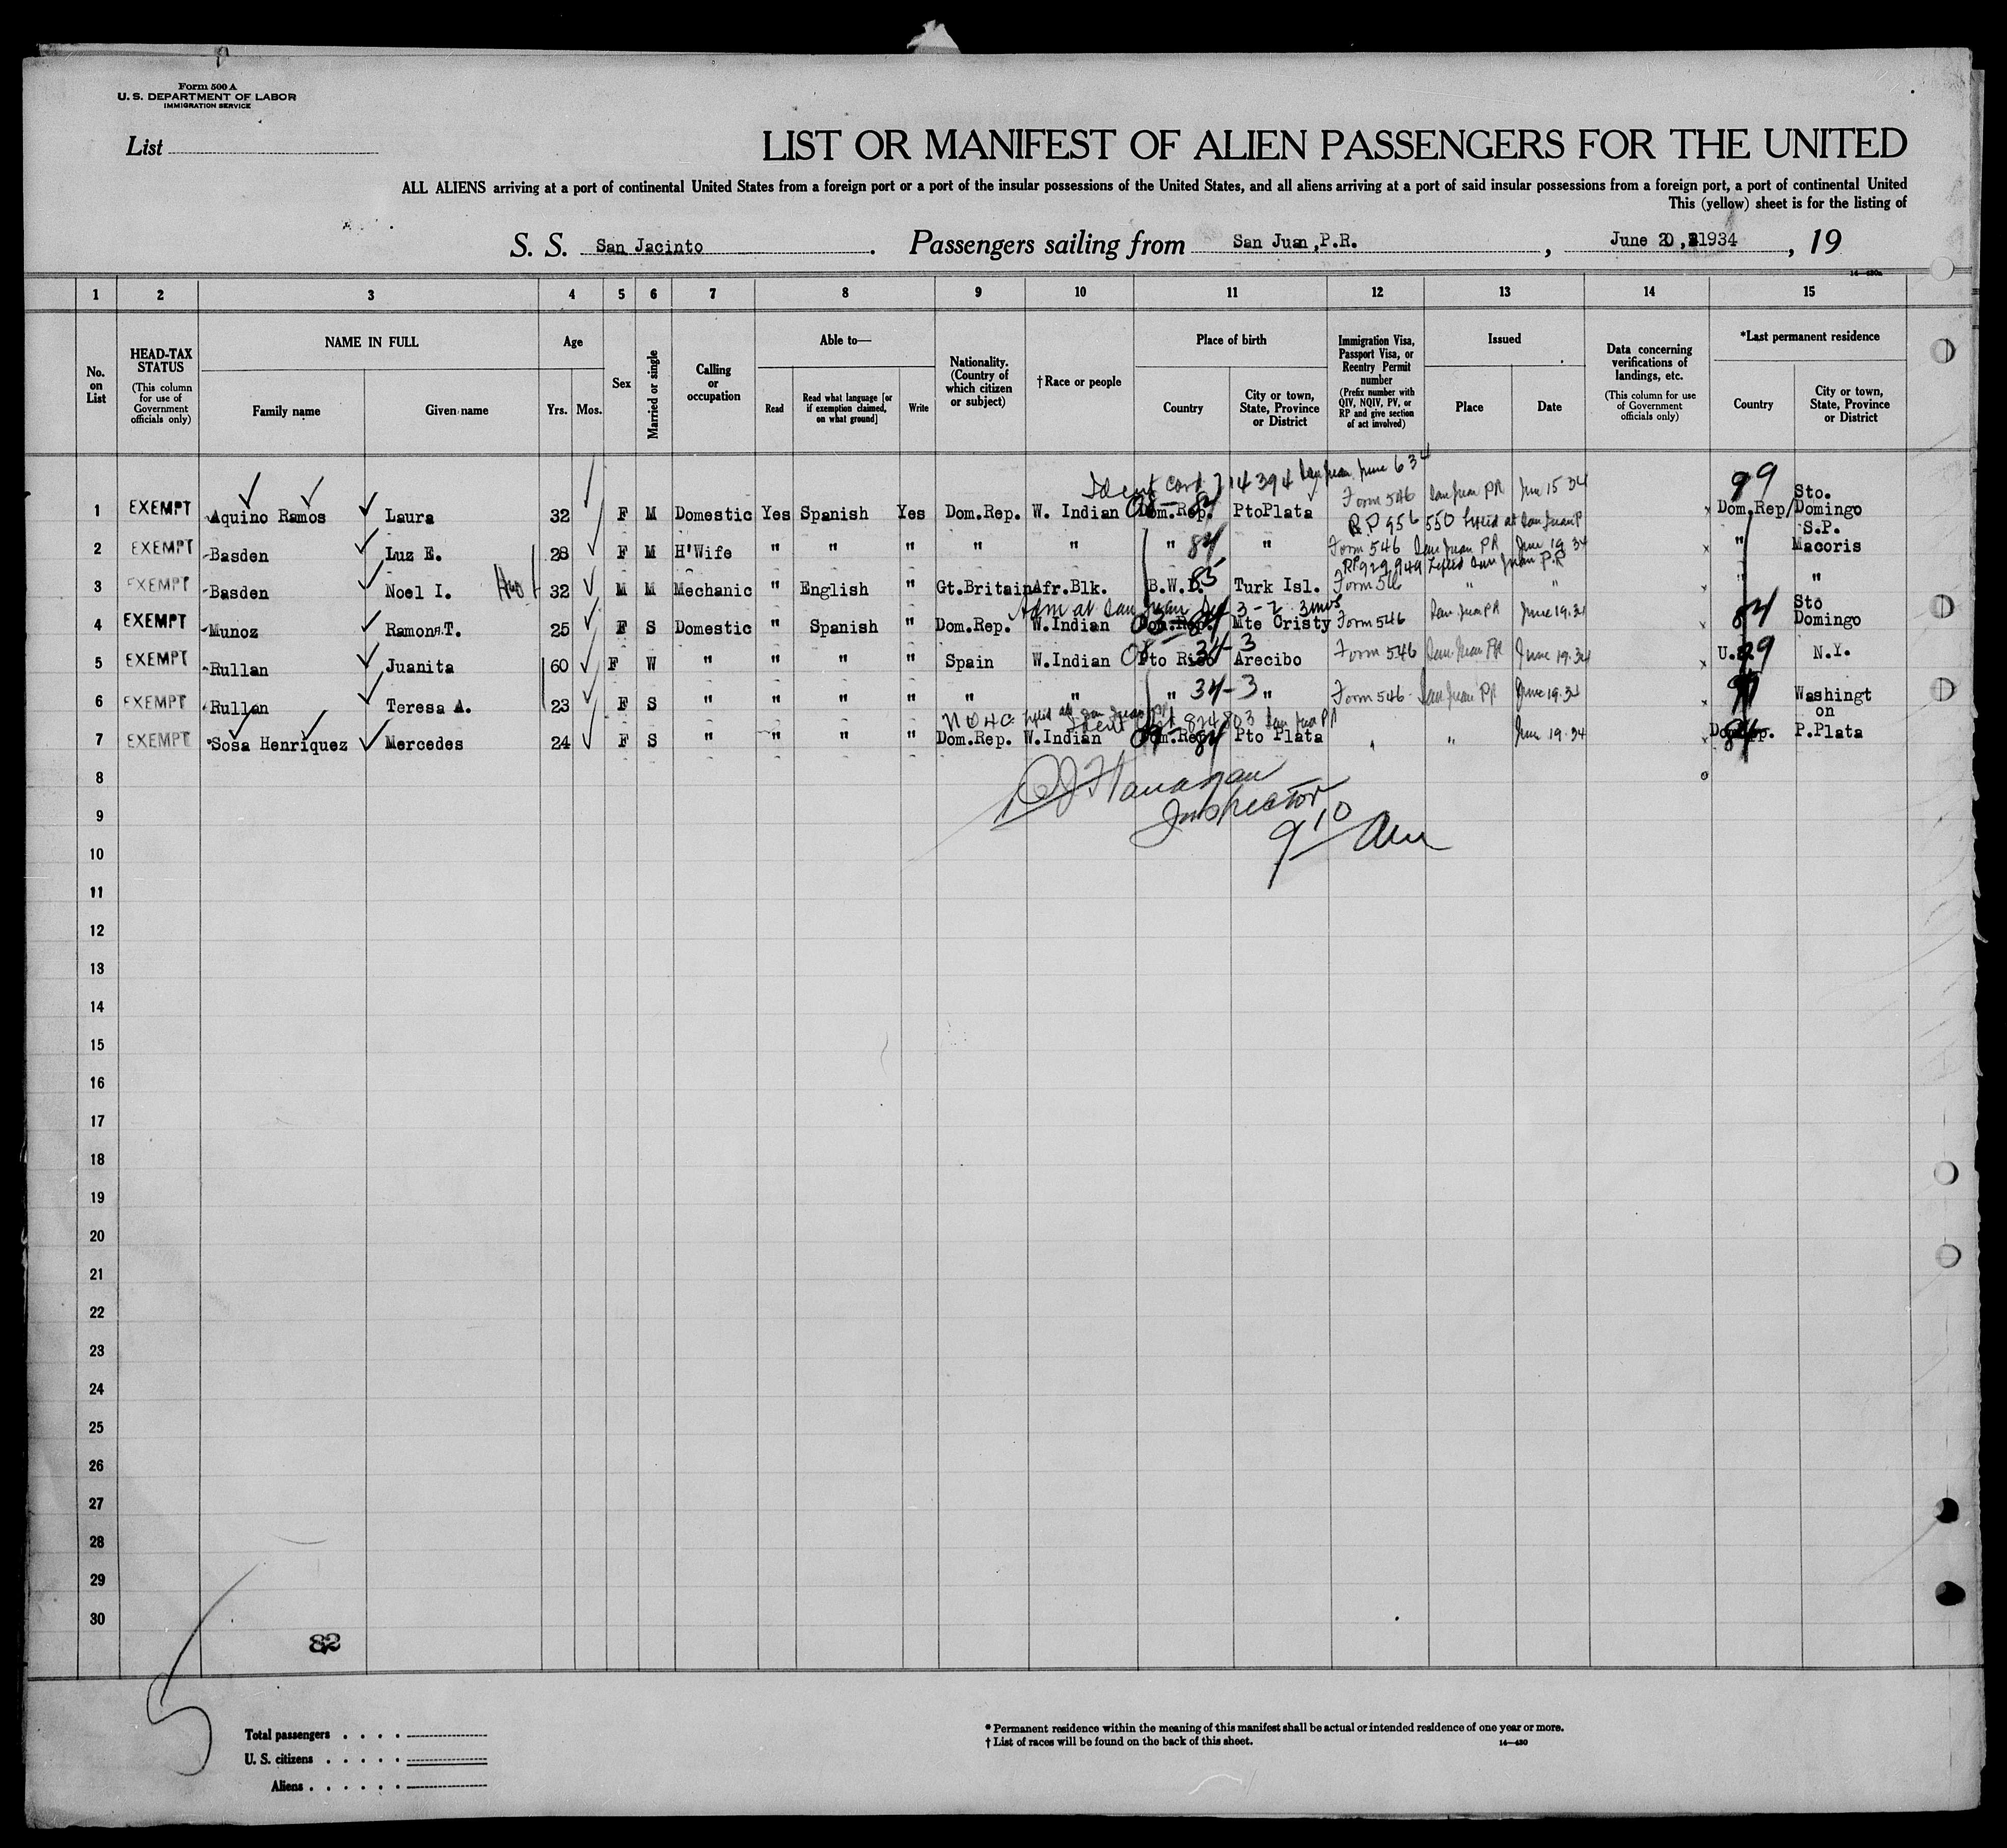 Form 500 A
U. S. DEPARTMENT OF LABOR
IMMIGRATION SERVICE
List
LIST OR MANIFEST OF ALIEN PASSENGERS FOR THE UNITED
ALL ALIENS arriving at a port of continental United States from a foreign port or a port of the insular possessions of the United States, and all aliens arriving at a port of said insular possessions from a foreign port, a port of continental United
This (yellow) sheet is for the listing of
S. S. San Jacinto . Passengers sailing from San Juan,P.R. , June 20, 1934 , 19
1 2 3 4 5 6 7 8 9 10 11 12 13 14 15
No. on List
HEAD-TAX STATUS (This column for use of Government officials only)
NAME IN FULL
Family name Given name
Age
Yrs. Mos.
Sex
Married or single
Calling or occupation
Able to—
Read Read what language [or if exemption claimed, on what ground] Write
Nationality. (Country of which citizen or subject)
†Race or people
Place of birth
Country City or town, State, Province or District
Immigration Visa, Passport Visa, or Reentry Permit number (Prefix number with QIV, NQIV, PV, or RP and give section of act involved)
Issued
Place Date
Data concerning verifications of landings, etc. (This column for use of Government officials only)
*Last permanent residence
Country City or town, State, Province or District
Ident Card 714394 San Juan June 6 34
1 EXEMPT Aquino Ramos Laura 32 F M Domestic Yes Spanish Yes Dom.Rep. W. Indian Dom.Rep. PtoPlata Form 546 San Juan PR June 15 34 99 Dom.Rep/ Sto. Domingo
RP 956 550 lifted at San Juan P
2 EXEMPT Basden Luz E. 28 F M H'Wife " " " " " " 84 " Form 546 San Juan PR June 19 34 " S.P. Macoris
RP 929,949 lifted San Juan P.R
3 EXEMPT Basden Noel I. 32 M M Mechanic " English " Gt.Britain Afr.Blk. B.W.I. 85 Turk Isl. Form 546 " " " "
Adm at San Juan 3-2 3mos
4 EXEMPT Munoz Ramona.T. 25 F S Domestic " Spanish " Dom.Rep. W.Indian Dom.Rep. Mte Cristy Form 546 San Juan PR June 19.34 84 Sto Domingo
5 EXEMPT Rullan Juanita 60 F W " " " " Spain W.Indian Pto Rico 34-3 Arecibo Form 546 San Juan PR June 19.34 U.S. 99 N.Y.
6 EXEMPT Rullan Teresa A. 23 F S " " " " " " " 34-3 " Form 546 San Juan PR June 19.34 Washingt on
Ident Card 824803 San Juan PR
7 EXEMPT Sosa Henriquez Mercedes 24 F S " " " " Dom.Rep. W.Indian Dom.Rep. 84 Pto Plata " " June 19.34 Dom.Rep. 84 P.Plata
8
Flanagan
Inspector
9
9 10 AM
10
11
12
13
14
15
16
17
18
19
20
21
22
23
24
25
26
27
28
29
30
82
5
Total passengers
U. S. citizens
Aliens
* Permanent residence within the meaning of this manifest shall be actual or intended residence of one year or more.
† List of races will be found on the back of this sheet.
14—430